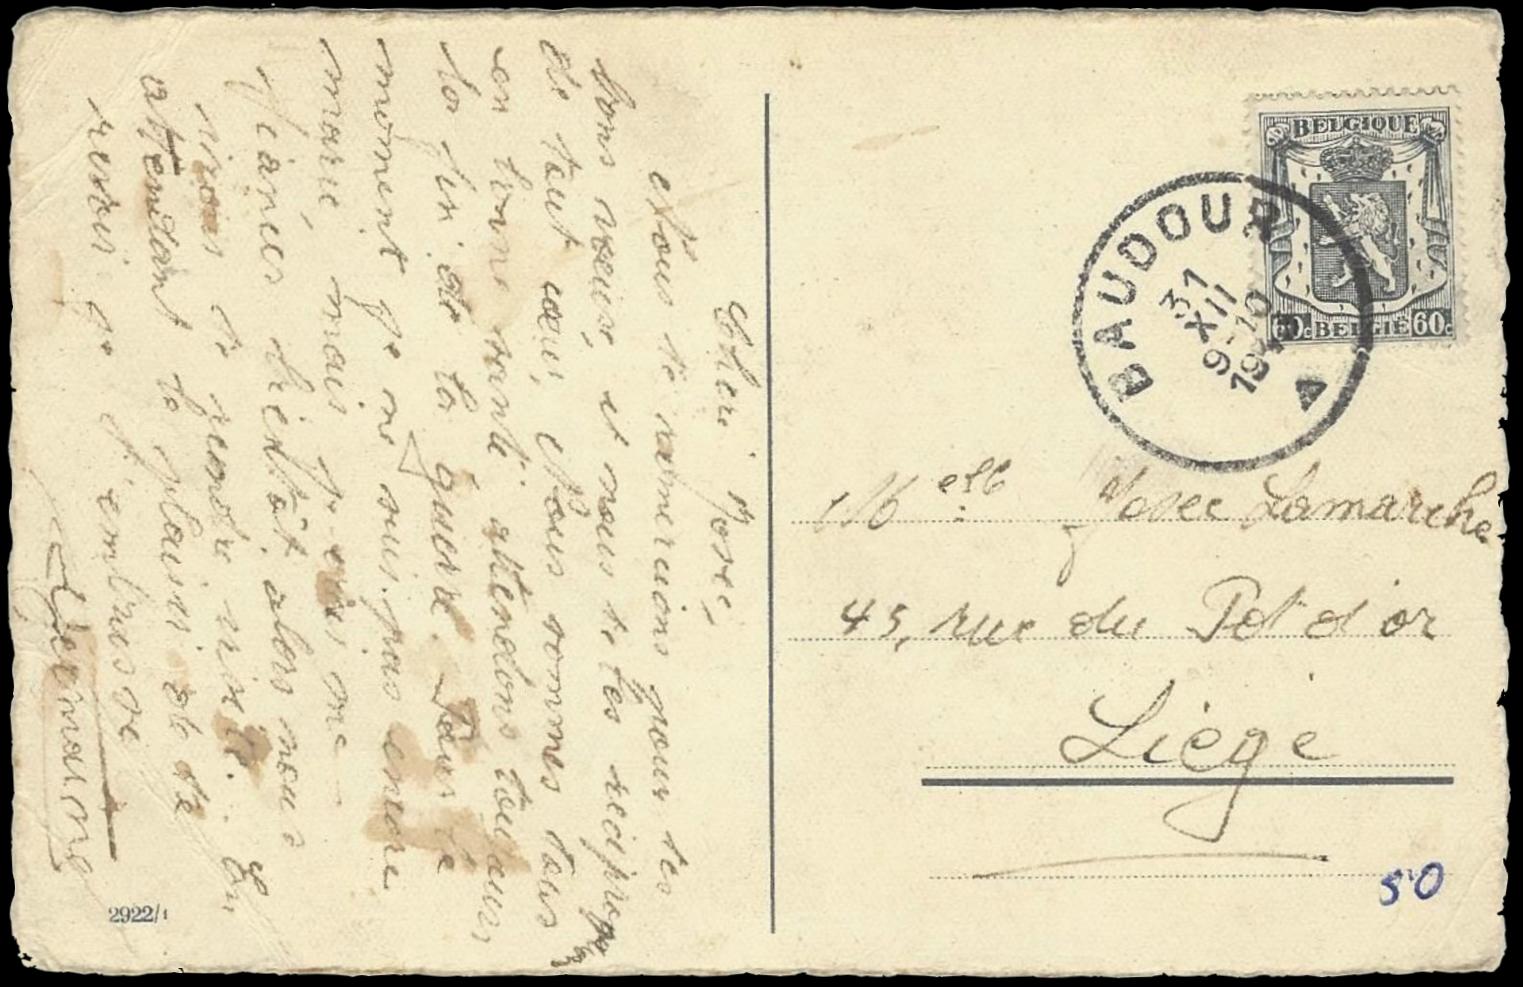 Chère Josée,
Nous te remercions pour tes
bons vœux, et nous te les réciproq
de tout cœur, Nous sommes tous
en bonne santé, attendons toujours
la fin de la guerre. Pour le
moment je ne suis pas encore
marié, mais je suis me
fiancés bientôt alors nous
irons de rendre visite. En
attendant le plaisir de te
revoir je t'embrasse
Germaine
2922/1
BELGIQUE
60c BELGIË 60c
BAUDOUR
31
XII
9-10
19
Melle Josée Lamarche
45, rue du Pot d'or
Liège
50